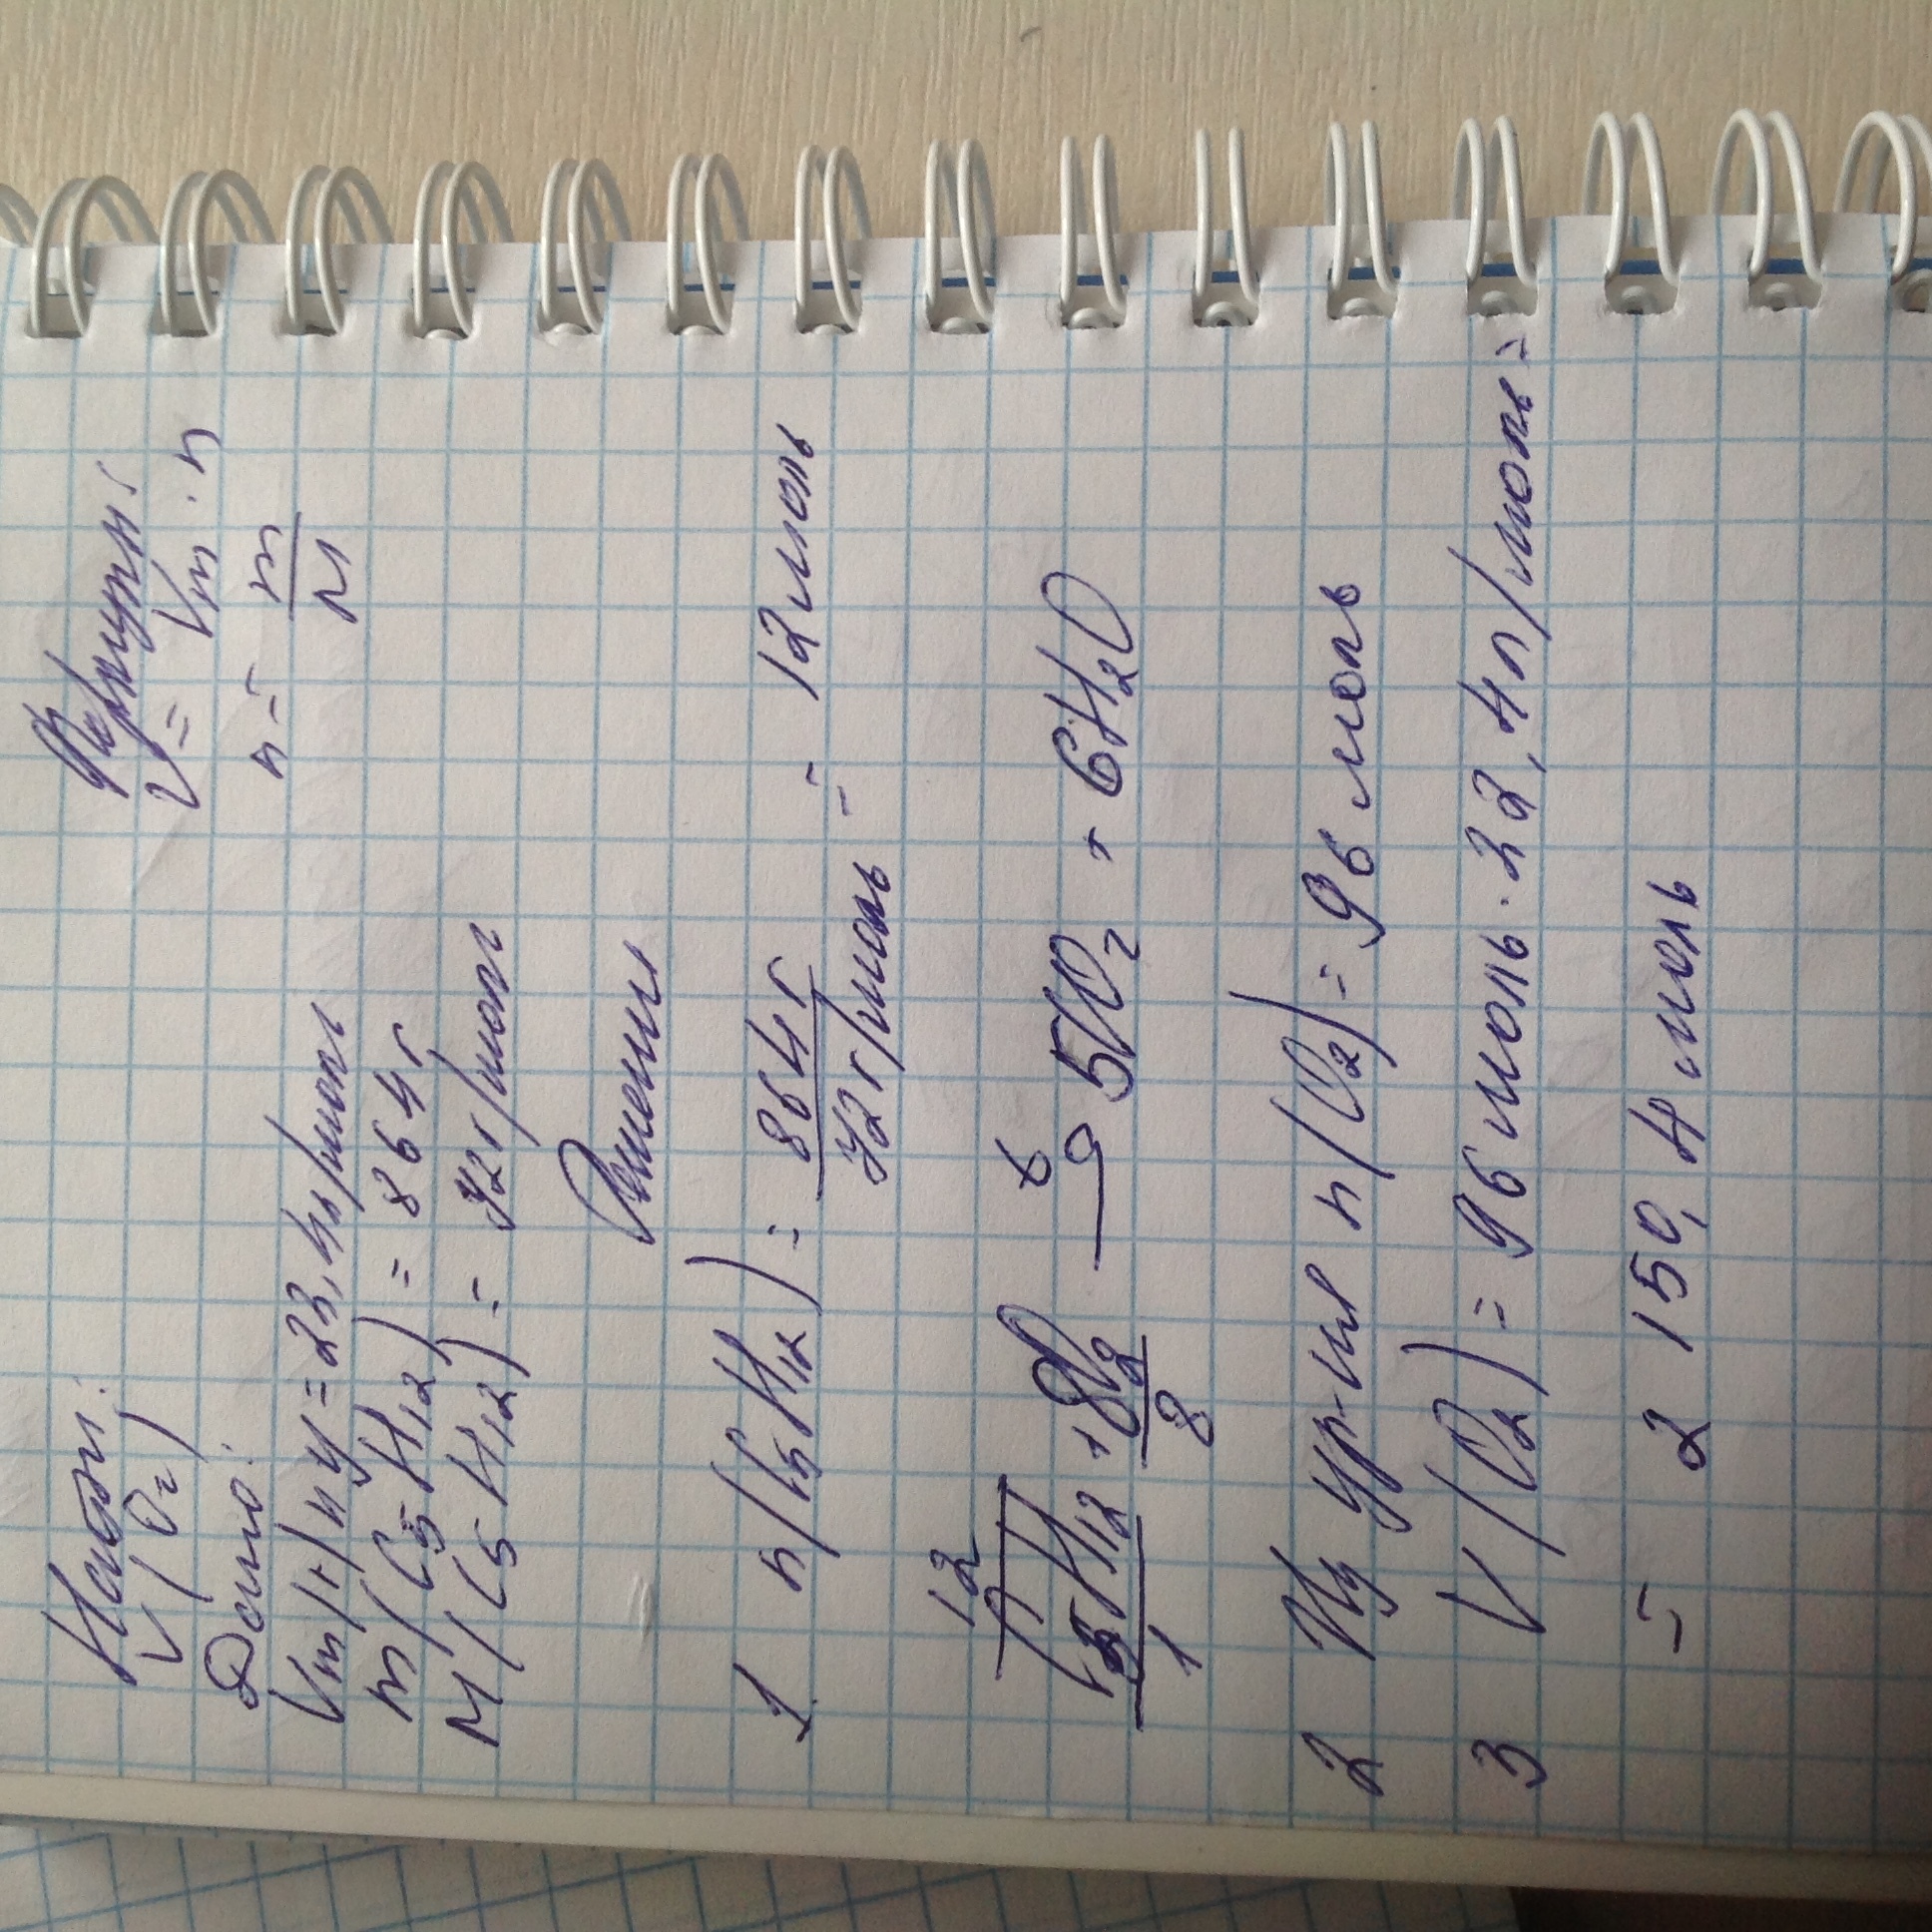 Найти:
V(O2)
Дано:
Vm(н у = 22,4л/моль
m(C5H12) = 864г
M(C5H12) = 72г/моль
Формулы:
V = Vm · n
n = m/M
Решение
1 n(C5H12) = 864г/72г/моль = 12моль
12 6
C5H12 + 8O2 → 5CO2 + 6H2O
1 8
2 Из ур-ия n(O2) = 96 моль
3 V(O2) = 96моль · 22,4л/моль=
= 2150,4 моль